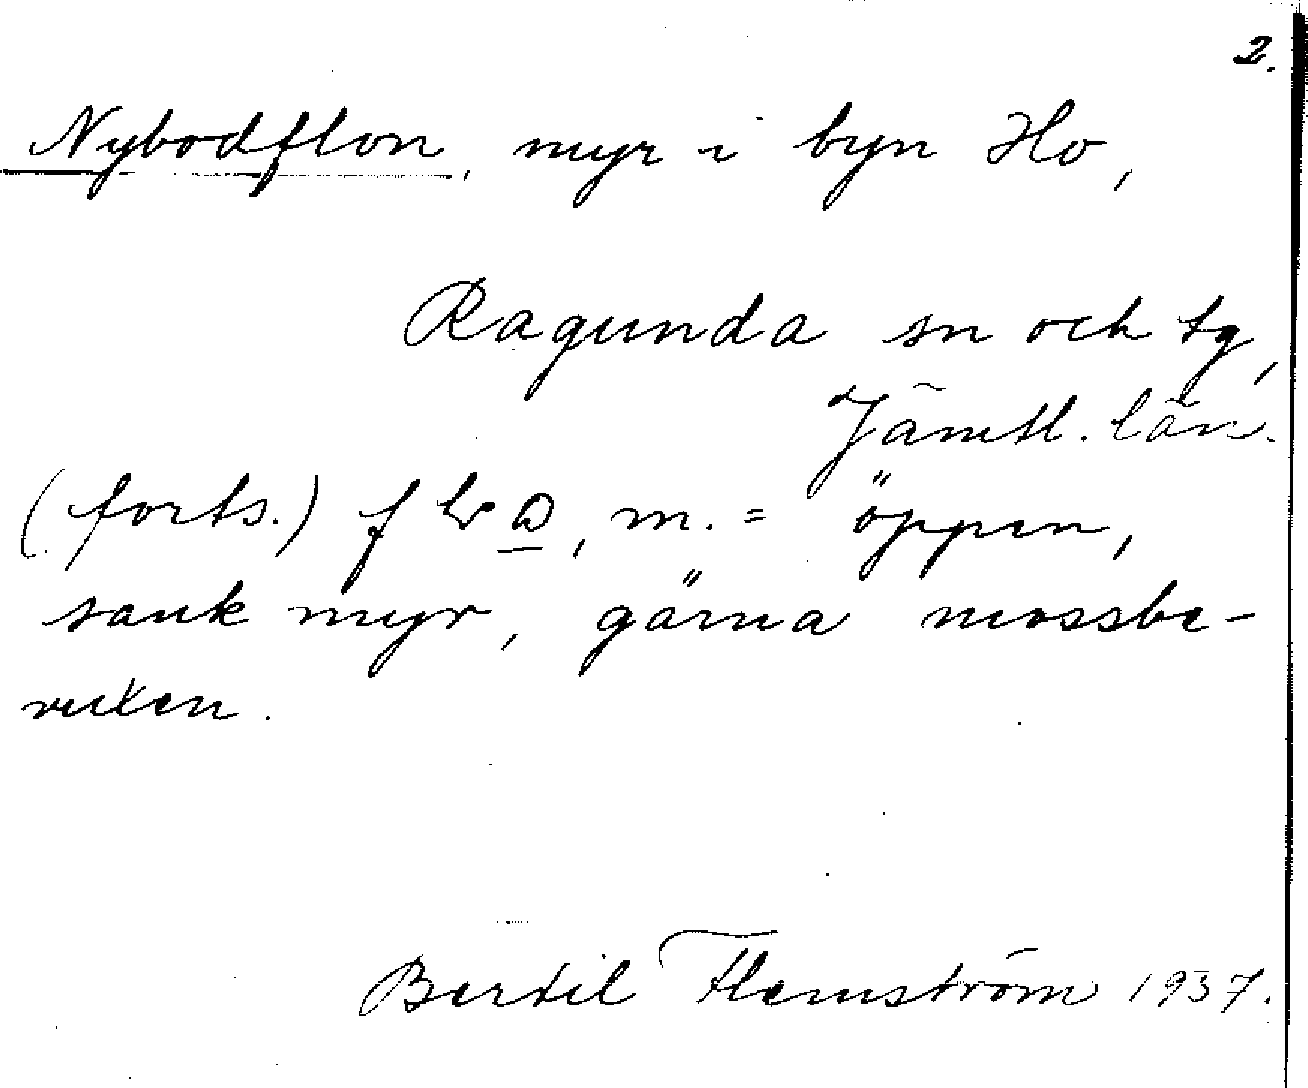 2.
Nybodflon, myr i byn Ho,
Ragunda sn och tg,
Jämtl. län.
(forts.) m. = öppen,
sank myr, gärna mossbe-
vuxen.
Bertil Flemström 1937.